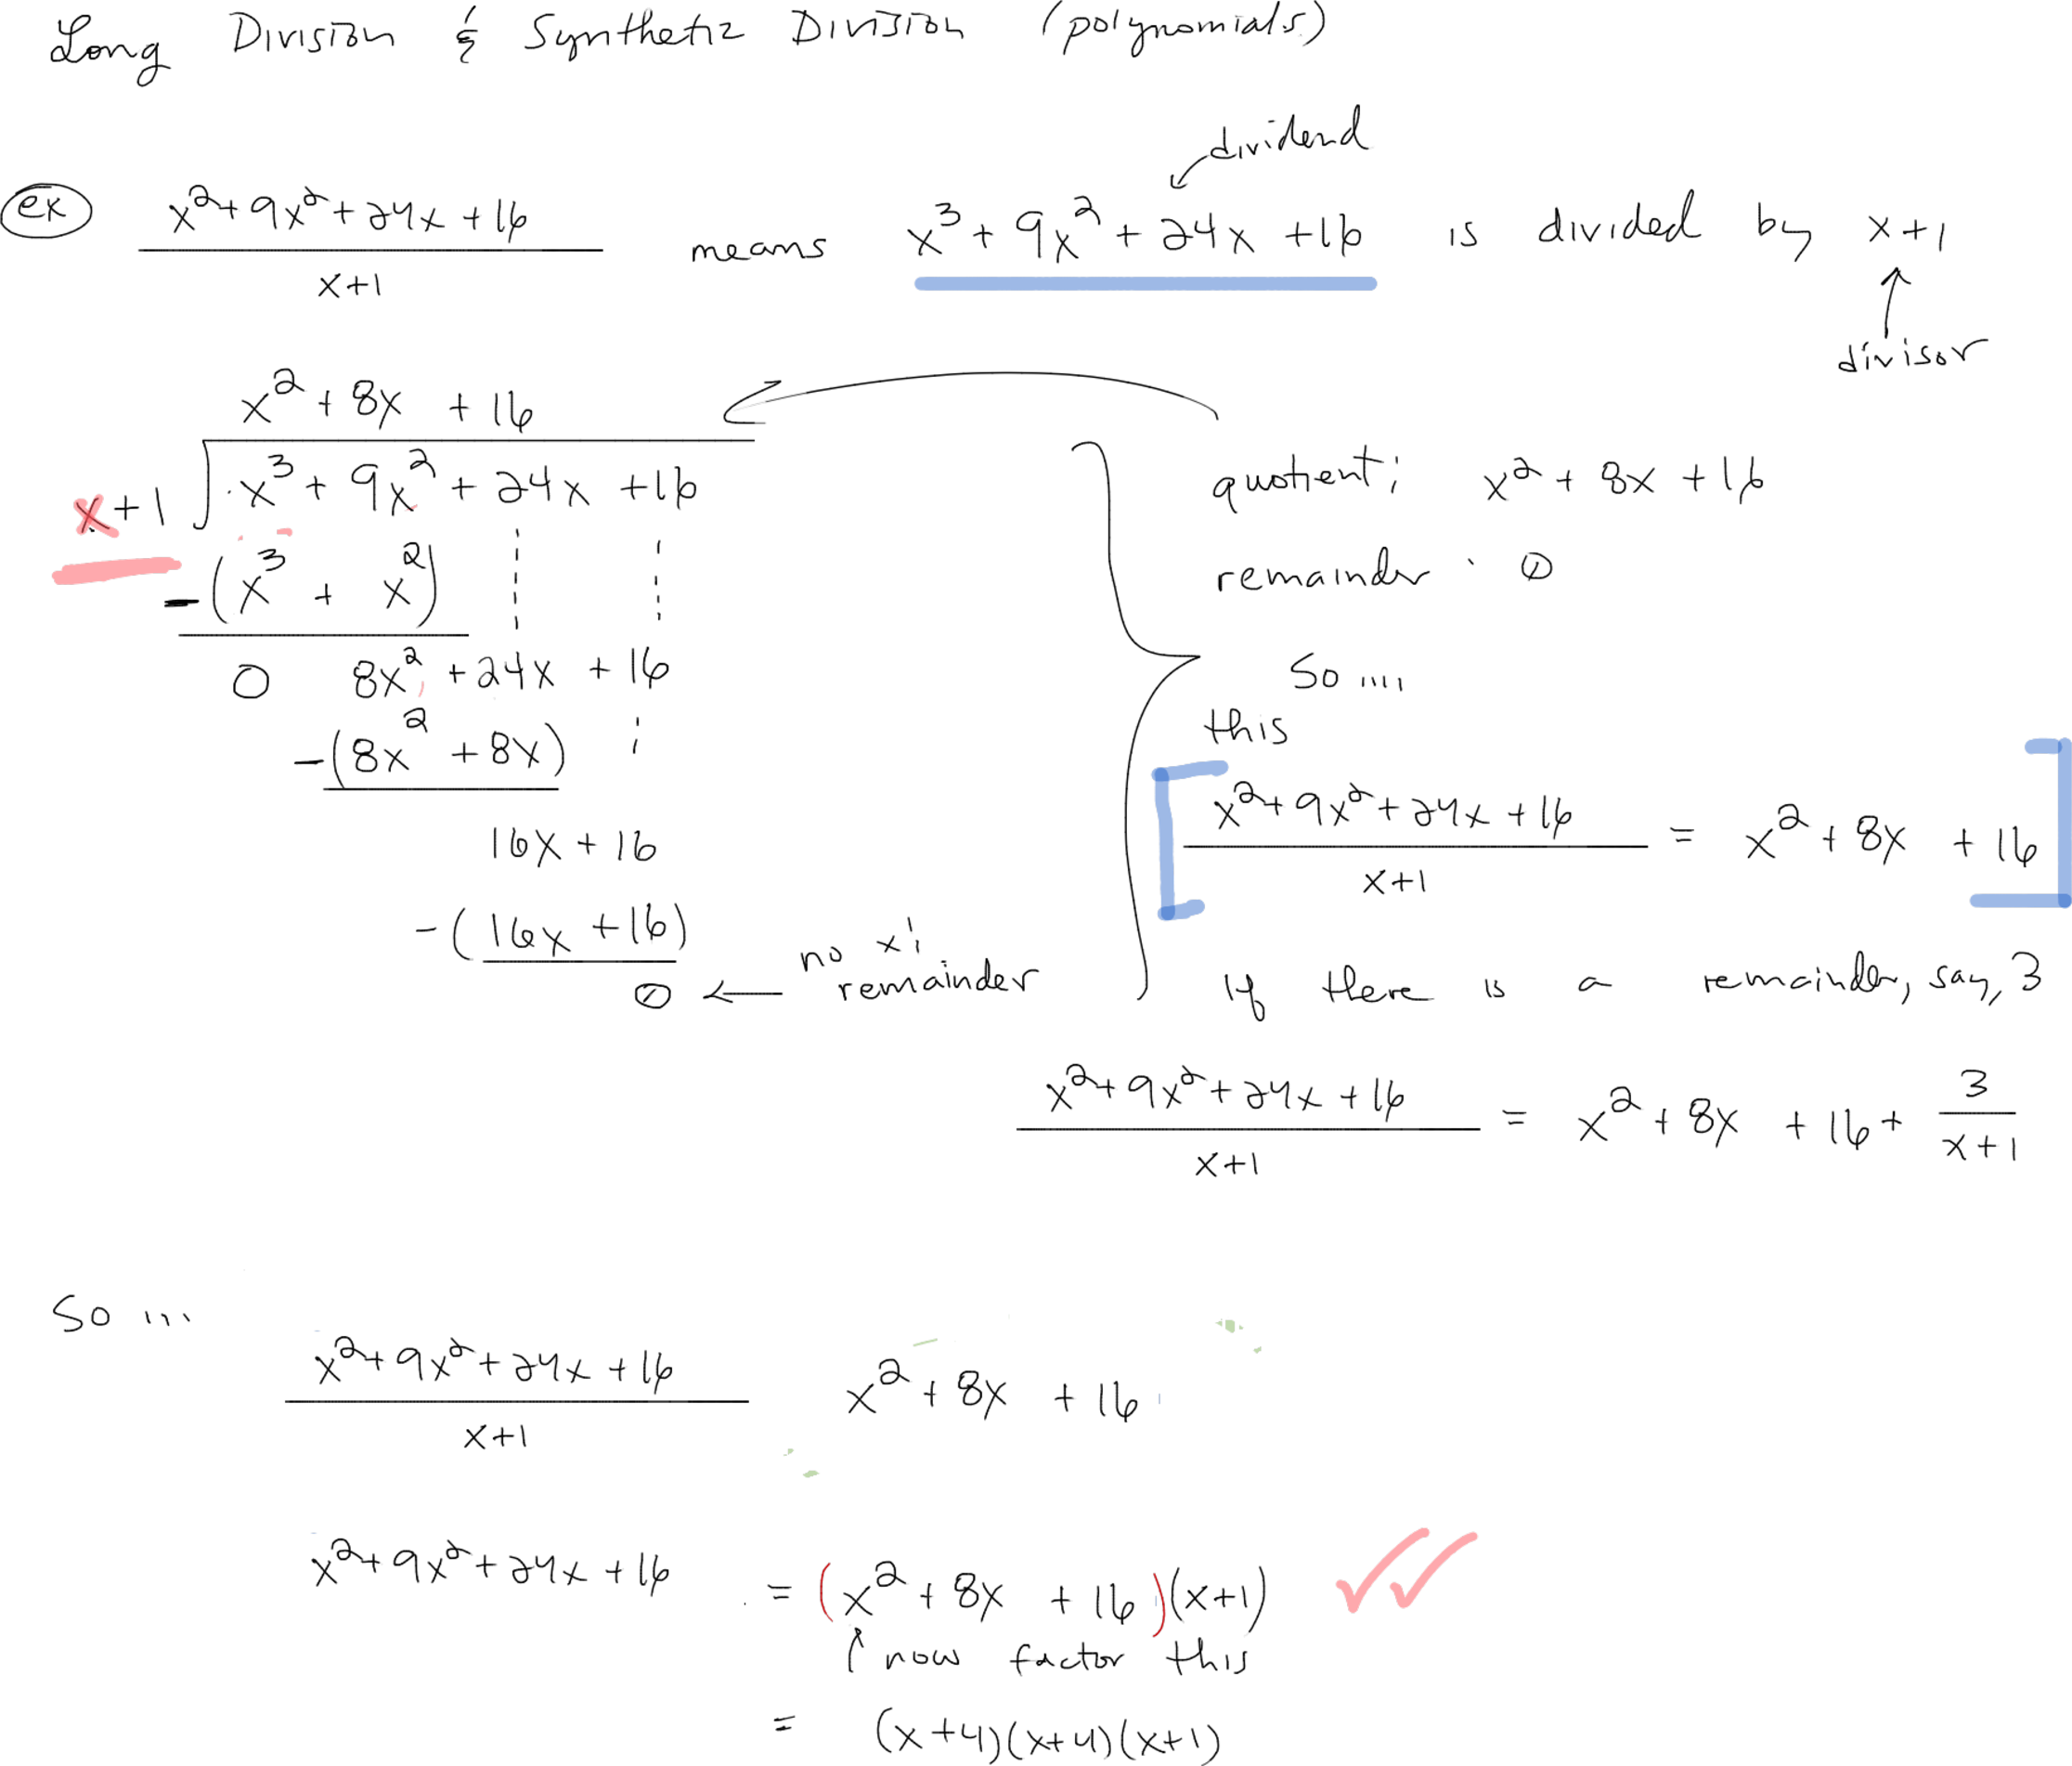 Long Division & Synthetic Division (polynomials)
dividend
ex x²+9x²+24x+16 / x+1 means x³+9x²+24x+16 is divided by x+1
divisor
x²+8x+16
x+1 x³+9x²+24x+16
-(x³+x²)
0 8x²+24x+16
-(8x²+8x)
16x+16
-(16x+16)
0 ← no remainder
quotient: x²+8x+16
remainder: 0
So ....
this
x²+9x²+24x+16 / x+1 = x²+8x+16
If there is a remainder, say, 3
x²+9x²+24x+16 / x+1 = x²+8x+16+ 3 / x+1
So ...
x²+9x²+24x+16 / x+1 x²+8x+16
x²+9x²+24x+16 = (x²+8x+16)(x+1)
↑ now factor this
= (x+4)(x+4)(x+1)